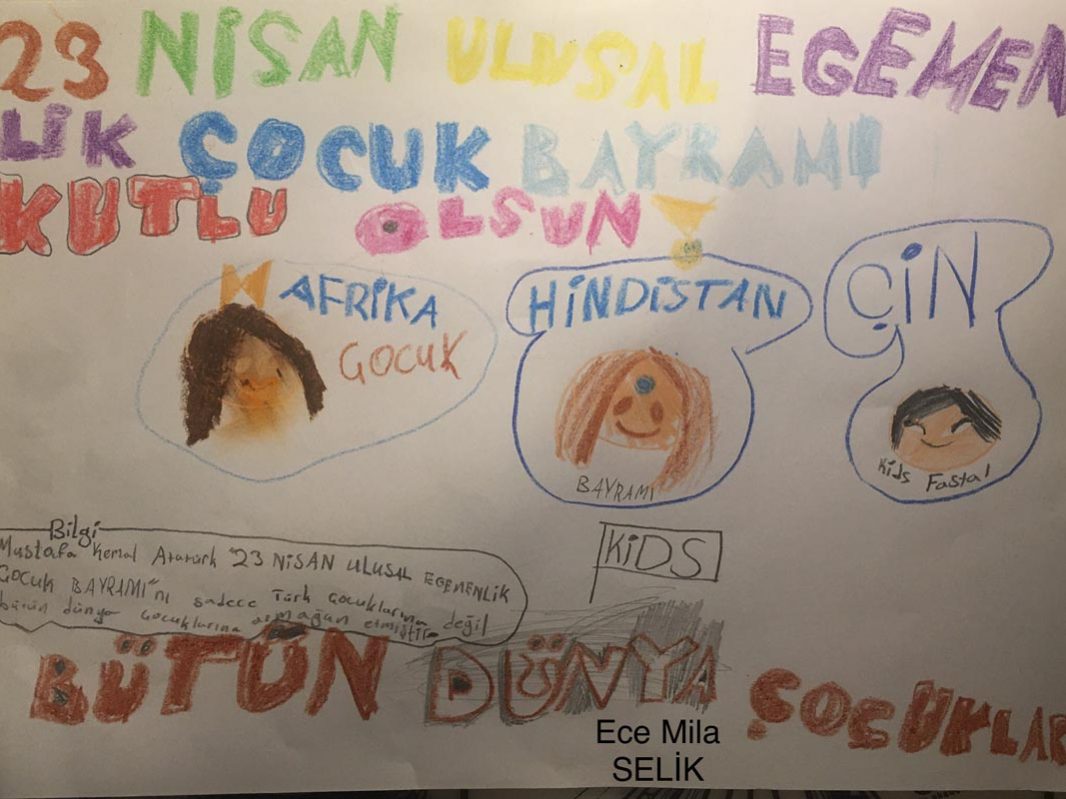 23 NİSAN ULUSAL EGEMEN
LİK ÇOCUK BAYRAMI
KUTLU OLSUN
AFRİKA
ÇOCUK
HİNDİSTAN
BAYRAMI
ÇİN
Kids Fastal
Bilgi
Mustafa Kemal Atatürk "23 NİSAN ULUSAL EGEMENLİK
ÇOCUK BAYRAMI"nı sadece Türk çocuklarına değil
bütün dünya çocuklarına armağan etmiştir
KİDS
BÜTÜN DÜNYA ÇOCUKLAR
Ece Mila
SELİK